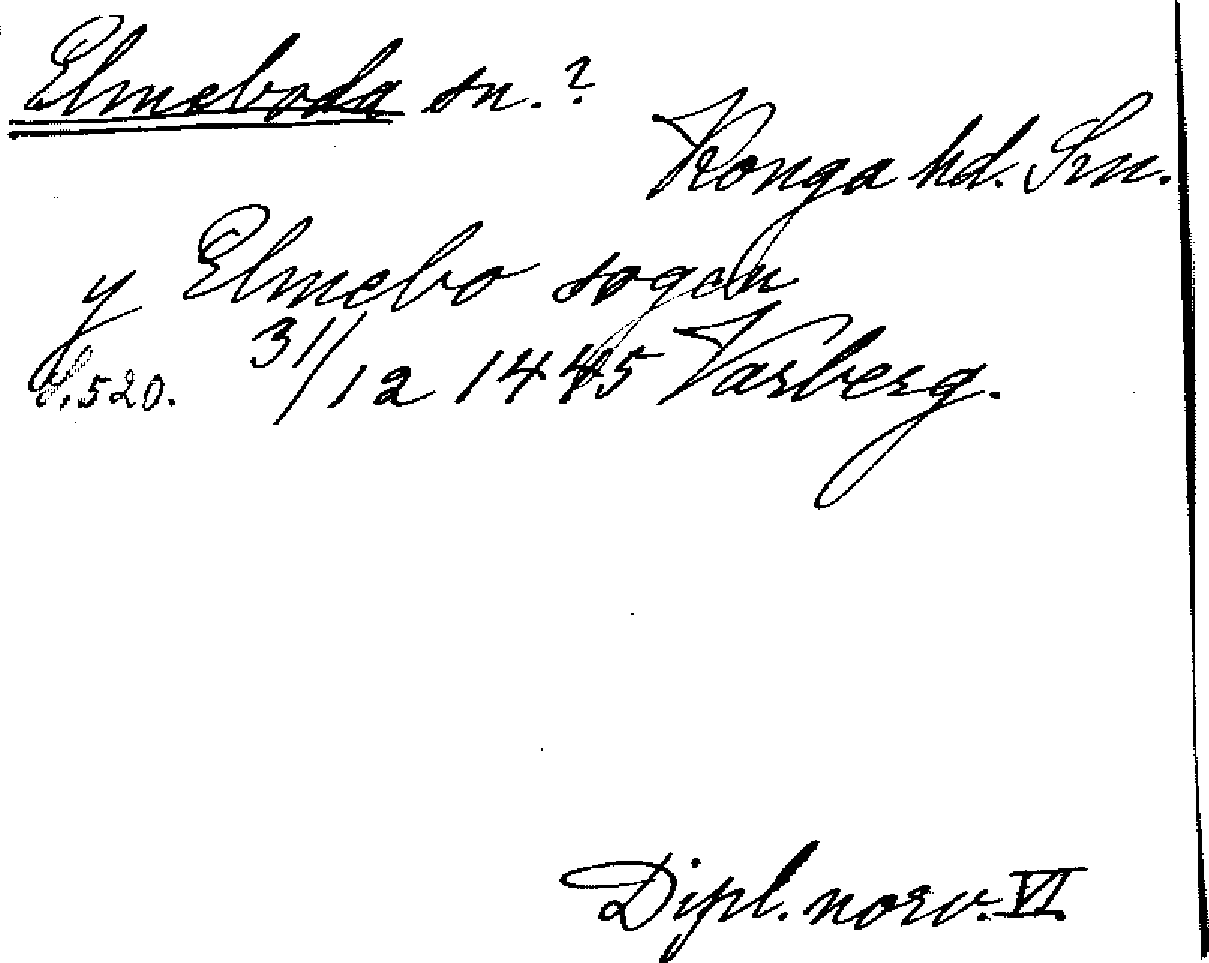 Elmeboda sn.?
Konga hd. Sm.
y Elmebo sogen
S. 520. 31/12 1445 Varberg.
Dipl. norv. VI.